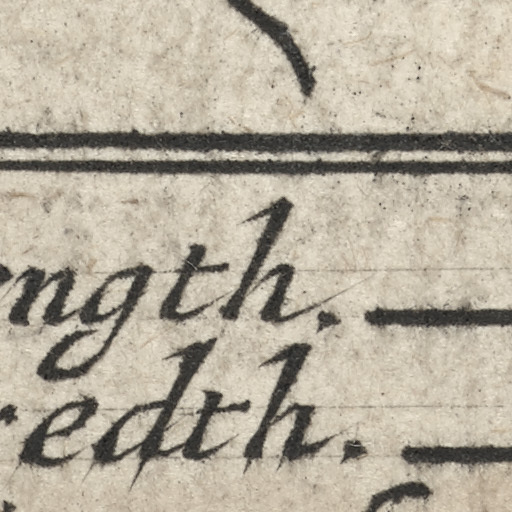 ength. —
redth. —